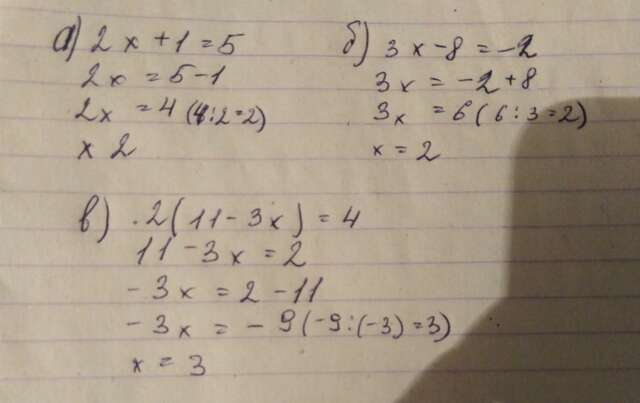 а) 2x + 1 = 5
2x = 5 - 1
2x = 4 (4 : 2 = 2)
x 2
б) 3x - 8 = -2
3x = -2 + 8
3x = 6 (6 : 3 = 2)
x = 2
в) .2(11 - 3x) = 4
11 - 3x = 2
- 3x = 2 - 11
- 3x = - 9 (-9 : (-3) = 3)
x = 3